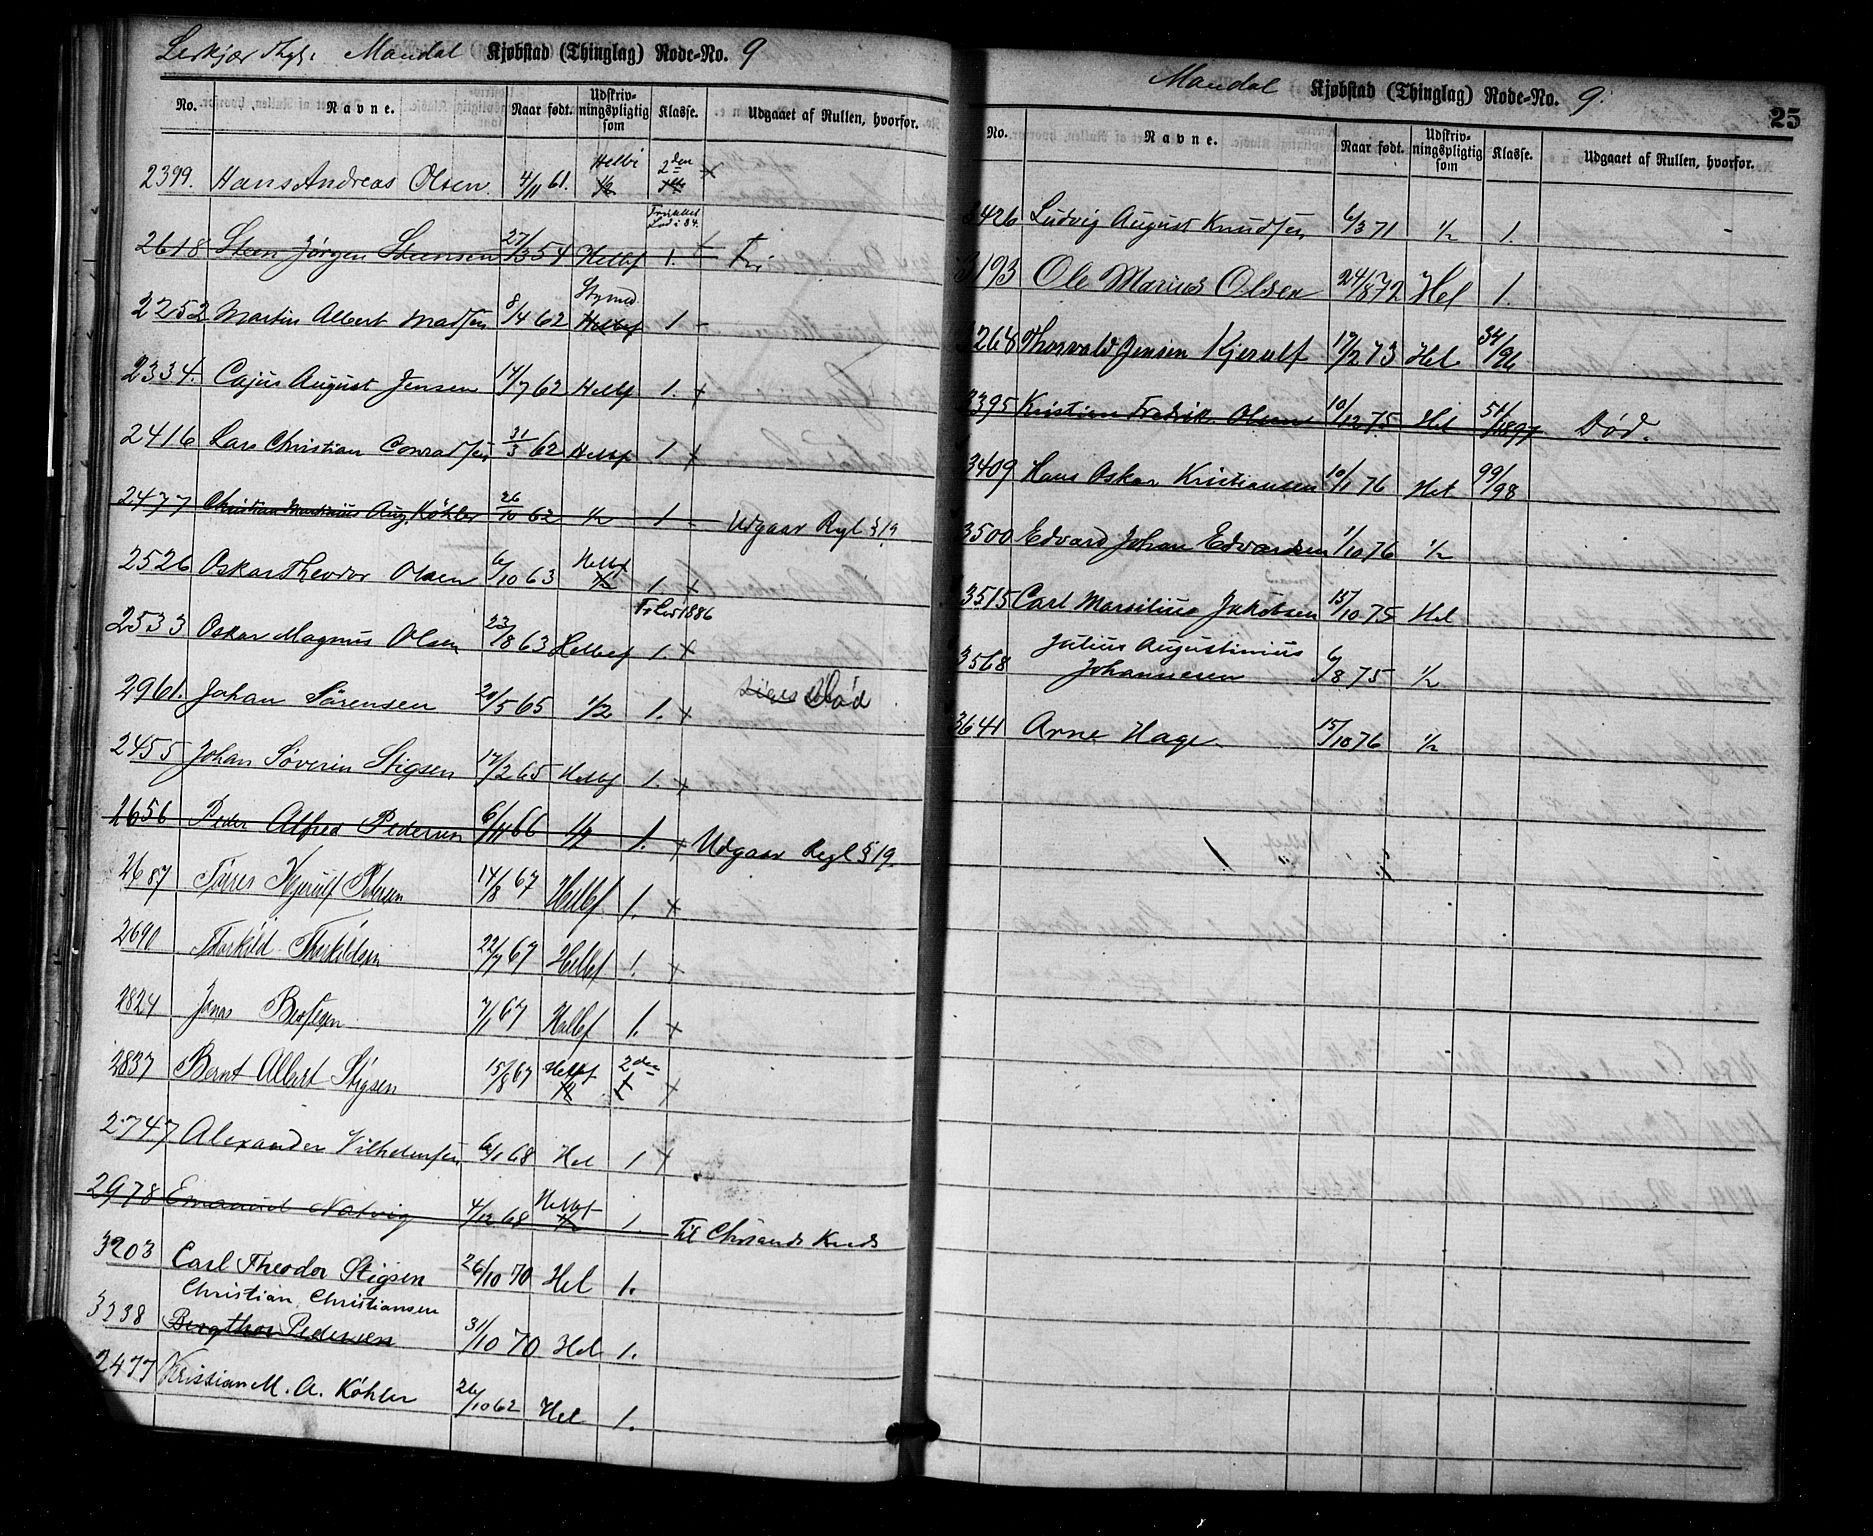 Mandal Kjøbstad (Thinglag) Rode-No. 9
No. Navne. Naar født. Udskriv-ningspligtig som Klasse. Udgaaet af Rullen, hvorfor.
2399. Hans Andreas Olsen. 4/11 61. Helbf 1/2 2den x
2618 Steen Jørgen Steensen 27/3 54 Helbf 1.
2252 Martin Albert Madsen 8/4 62 Styrmd Helbef 1 -
2334. Cajus August Jensen 14/7 62 Helbf 1. x
2416 Lars Christian Conradsen 31/3 62 Helbf 1 x
2477 Christian Martinius Aug. Köhler 26/10 62 1/2 1 - Udgaar Regl § 19
2526 Oskar Theodor Olsen 6/10 63 Helbf 1/2 1 x
2533 Oskar Magnus Olsen 23/8 63 Helbef 1. x
2961. Johan Sørensen 20/5 65 1/2 1. x siges Død
2455 Johan Søverin Stigsen 17/2 65 Helbf 1. x
2656 Peder Alfred Pedersen 6/11 66 1/2 1. x Udgaar Regl § 19
2687 Tørres Kjerulf Petersen 14/8 67 Helbf 1. x
2690 Thorkild Thorkildsen 22/7 67 Helbf 1. x
2824 Jonas Berntsen 7/1 67 Helbf 1. x
2837 Bernt Albert Stigsen 15/8 67 Helbf 1/2 2den 1 x
2747 Alexander Vilhelmsen 6/1 68 Hel 1 x
2978 Emanuel Natvig 4/12 68 Helbf 1/2 1 Til Chrisands Kreds
3203 Carl Theodor Stigsen 26/10 70 Hel 1.
Christian Christiansen
3238 Bergthor Pedersen 31/10 70 Hel 1.
2477 Kristian M. A. Köhler 26/10 62 Hel 1.
Mandal Kjøbstad (Thinglag) Rode-No. 9.
25
No. Navne. Naar født. Udskriv-ningspligtig som Klasse. Udgaaet af Rullen, hvorfor.
3426 Ludvig August Knudsen 6/3 71 1/2 1.
3193 Ole Marius Olsen 24/8 72 Hel 1.
3268 Thorvald Jensen Kjerulf 17/2 73 Hel 34/96
3395 Kristian Fredrik Olsen 10/12 75 Hel 51/1897 Død.
3409 Hans Oskar Kristiansen 10/1 76 Hel 99/98
3500 Edvard Johan Edvardsen 1/10 76 1/2
3515 Carl Marsilius Jakobsen 15/10 75 Hel
Julius Augustinius
3568 Johannesen 6/8 75 1/2
3641 Arne Hage 15/10 76 1/2